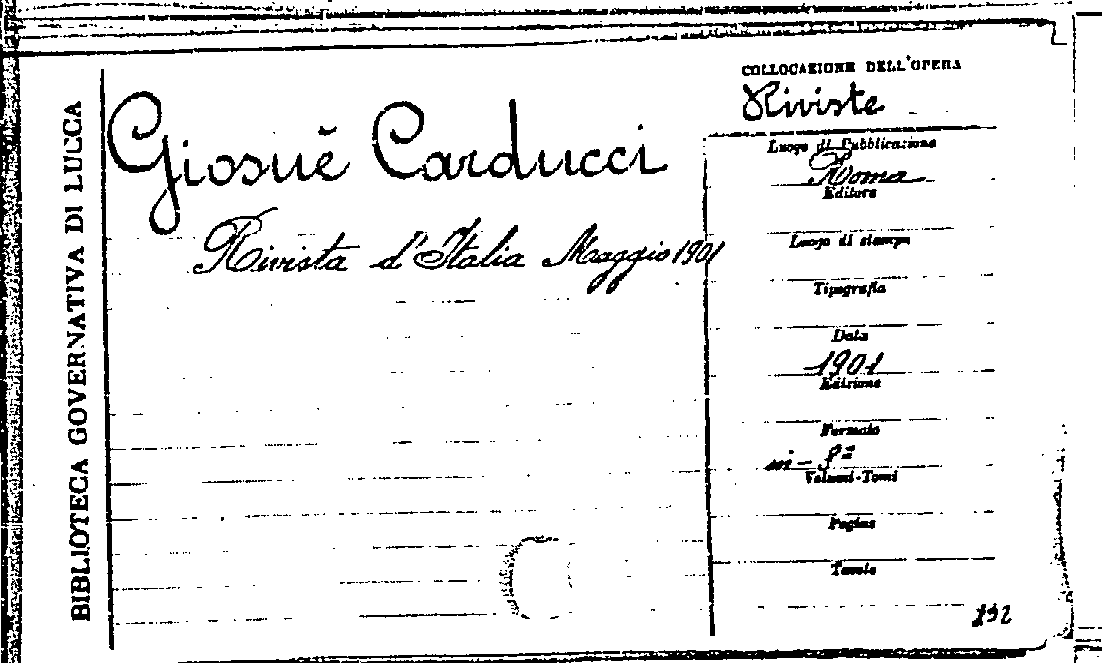 BIBLIOTECA GOVERNATIVA DI LUCCA
Giosuè Carducci
Rivista d'Italia Maggio 1901
COLLOCAZIONE DELL'OPERA
Riviste
Luogo di Pubblicazione
Roma
Editore
Luogo di stampa
Tipografia
Data
1901
Edizione
Formato
in-8º
Volumi-Tomi
Pagine
Tavole